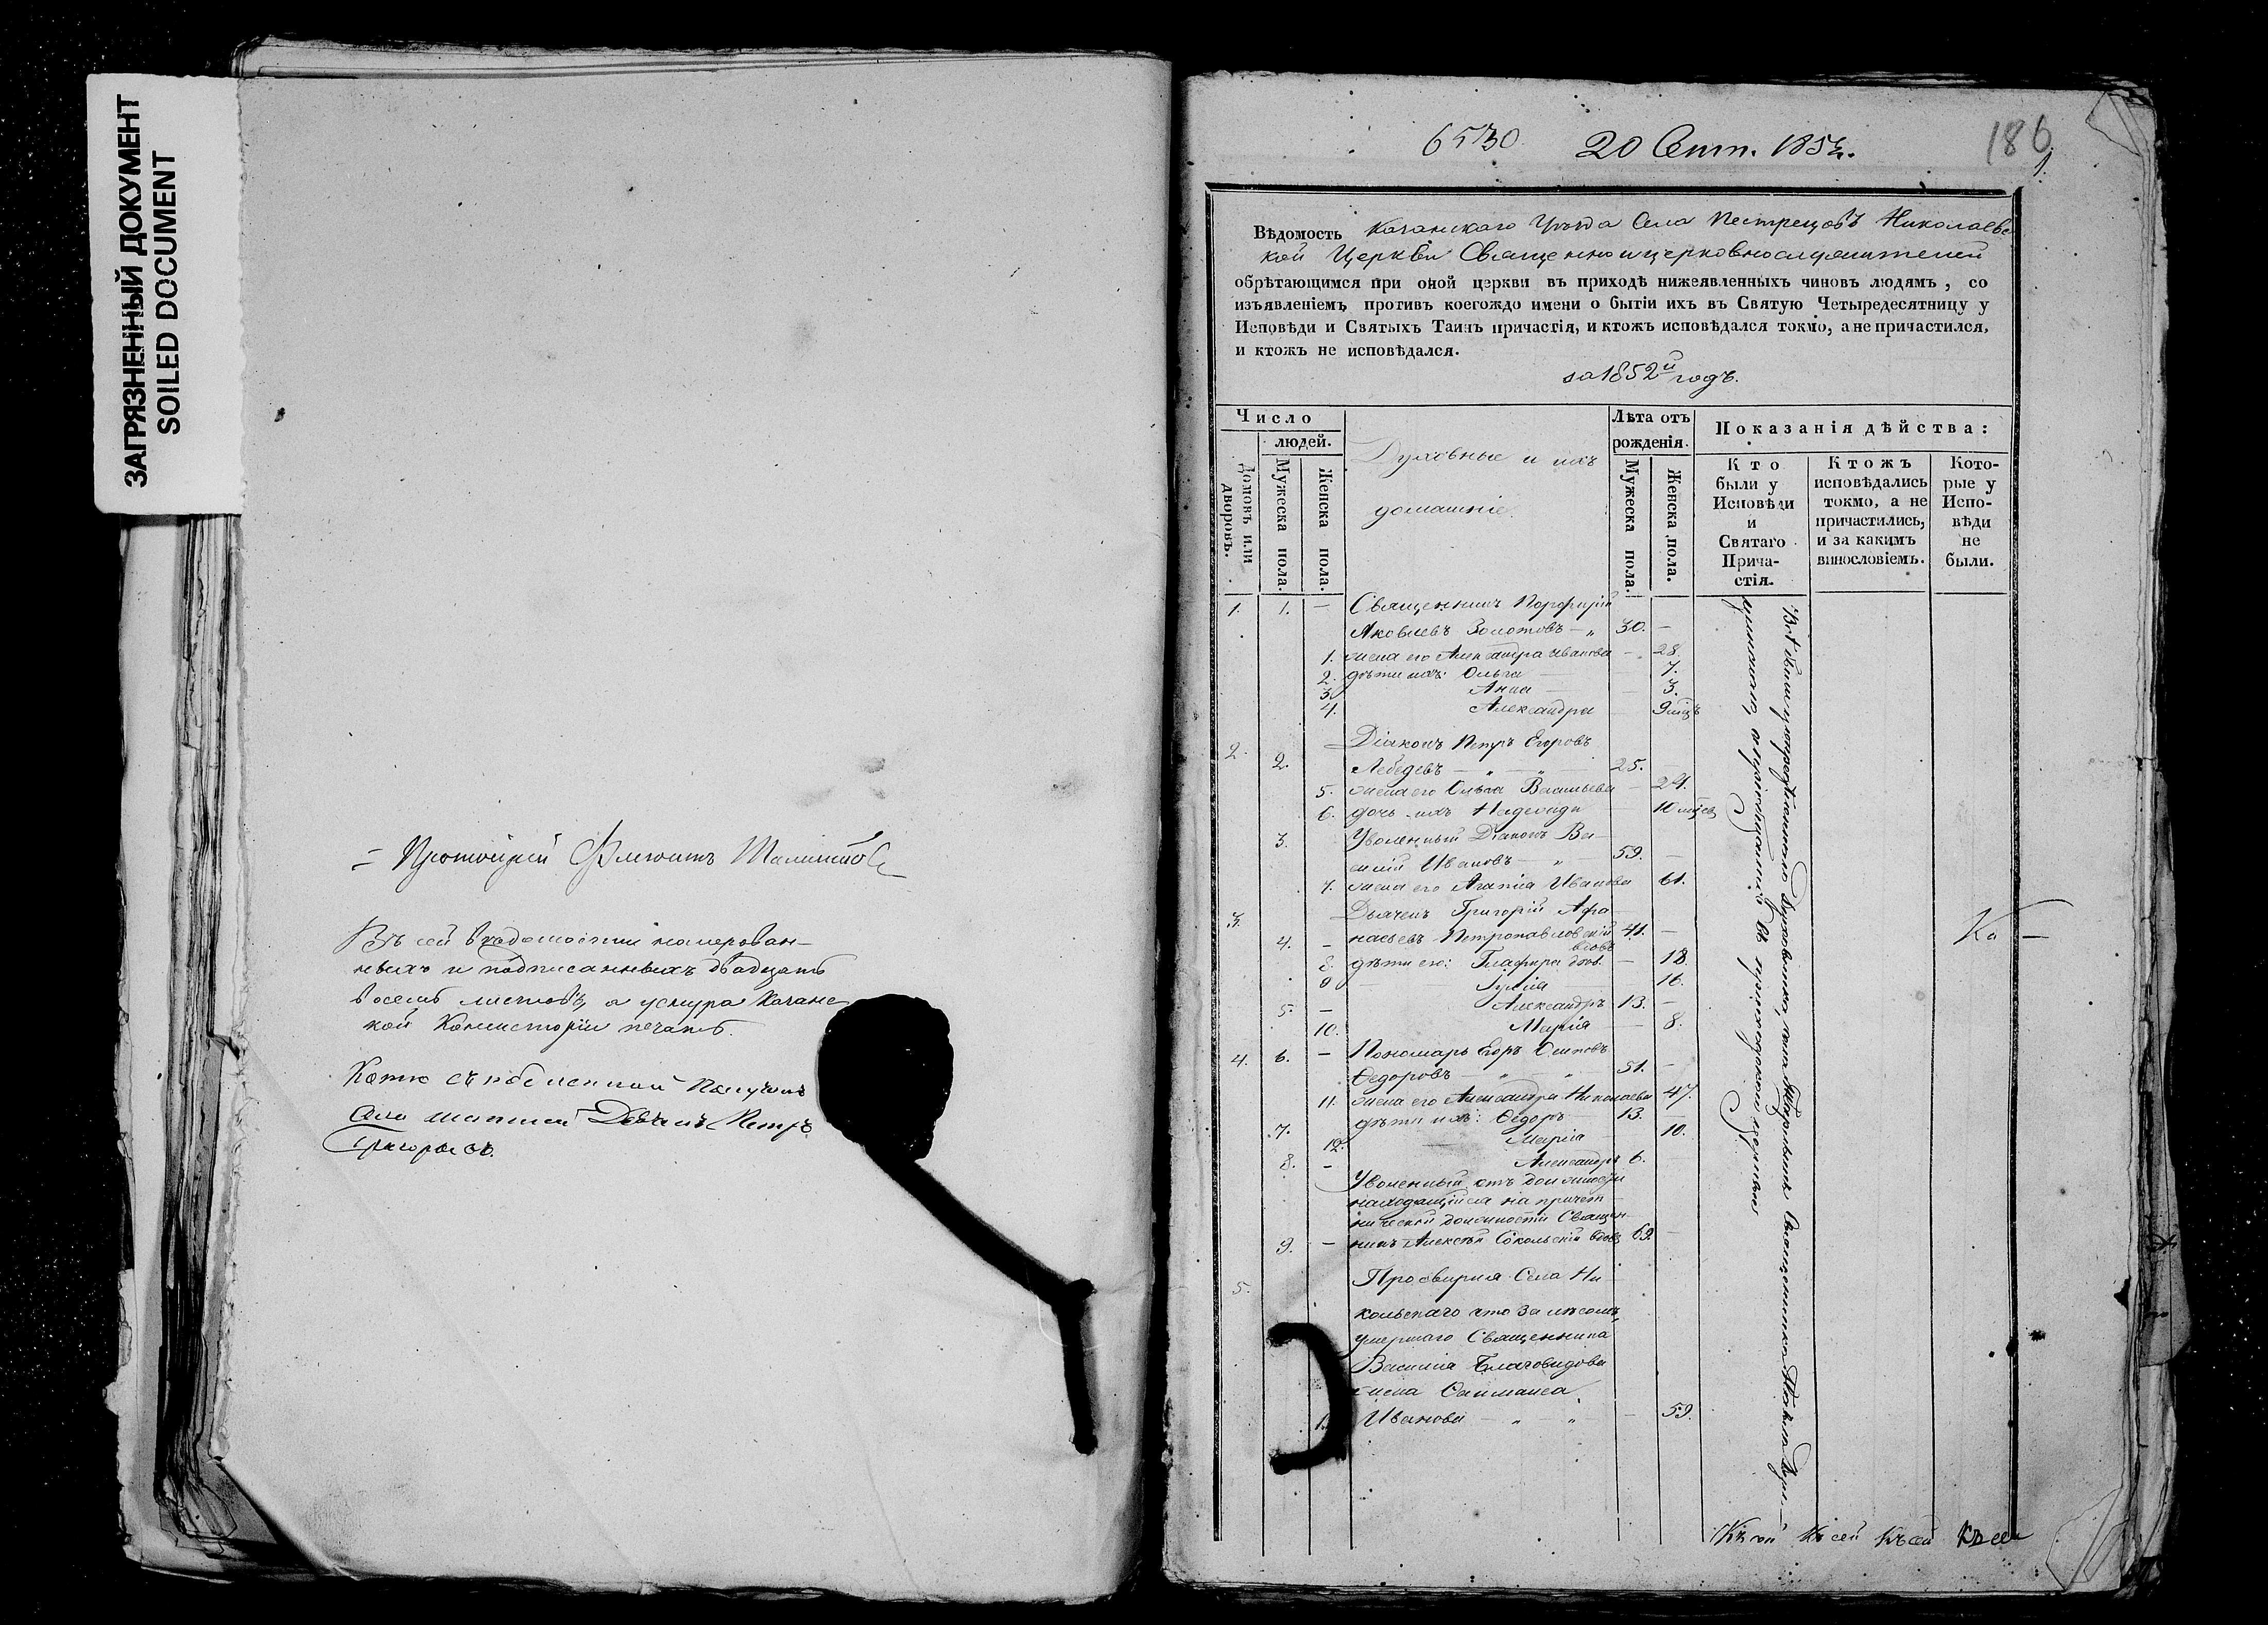 ЗАГРЯЗНЕННЫЙ ДОКУМЕНТ
SOILED DOCUMENT
Протоіерей
Въ сей вѣдомости номерован-
ныхъ и подписанныхъ двадцать
восемь листовъ, а у снура Казанс
кой Консисторіи печать.
Григорьевъ.
6530
20 Сент. 1852.
186
1.
Вѣдомость Казанскаго Уѣзда Села Пестрецовъ Николаевс
кой Церкви Священно и церковнослужителей
обрѣтающимся при оной церкви въ приходѣ нижеявленныхъ чиновъ людямъ, со
изъявленіемъ противъ коегождо имени о бытіи ихъ въ Святую Четыредесятницу у
Исповѣди и Святыхъ Таинъ причастія, и ктожъ исповѣдался токмо, а не причастился,
и ктожъ не исповѣдался.
за 1852й годъ.
Число
людей.
Домовъ или дворовъ.
Мужеска пола.
Женска пола.
Духовные и ихъ
домашніе.
Лѣта отъ
рожденія.
Мужеска пола.
Женска пола.
Показанія дѣйства:
Кто
были у
Исповѣди
и
Святаго
Прича-
стія.
Ктожъ
исповѣдались
токмо, а не
причастились,
и за какимъ
винословіемъ.
Кото-
рые у
Испо-
вѣди
не
были.
1. 1. — Священникъ Порфирій
Яковлевъ Золотовъ — „ 30. —
1. жена его Александра Иванова — 28.
2. дѣти ихъ: Ольга — 7.
3. Анна — 3.
4. Александра 9 мцъ
2. Діаконъ Петръ Егоровъ
2. Лебедевъ — „ — „ 25. —
5. жена его Ольга Васильева — 24.
6. дочь ихъ Надежда 10 мцев
3. Уволенный Діаконъ Ва-
силій Ивановъ — „ 59. —
7. жена его Агапія Иванова 61.
3. Дьячекъ Григорій Афа-
4. — насьевъ Петропавловскій вдовъ 41. —
8. дѣти его: Глафира — 18.
9 — Юлія 16.
5. — Александръ 13. —
10. Марія — 8.
4. 6. — Пономарь Егоръ Осиповъ
Ѳедоровъ — „ — „ 51. —
11. жена его Александра Николаева 47.
7. дѣти ихъ: Ѳедоръ 13. —
12. Марія — 10.
8. — Александръ 6.
Уволенный отъ должности
находящійся на причет-
нической должности Священ-
9. — никъ Алексѣй Сокольскій вдовъ 69. —
5. Просвирня Села Ни-
кольскаго что за лѣсомъ,
умершаго Священника
Василія Благовидова
жена
Иванова — „ — „ — 59.
Всѣ были у
въ приходской церкви
Ка —
Къ сей Къ сей Къ сей Къ сей